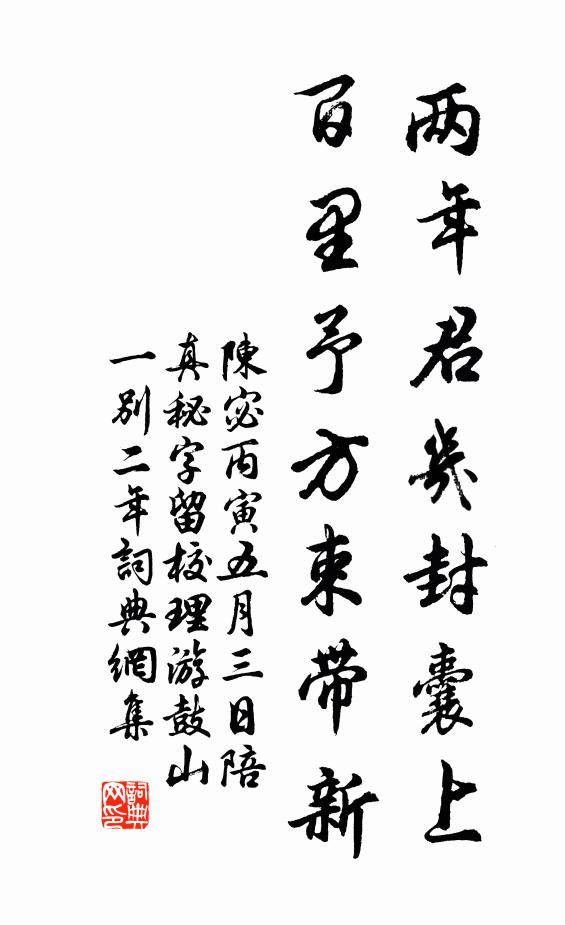 两年君幾封囊上
百里予方束带新
陳宓丙寅五月三日陪
真秘字留校理游鼓山
一别二年詞典網集
詞典网印